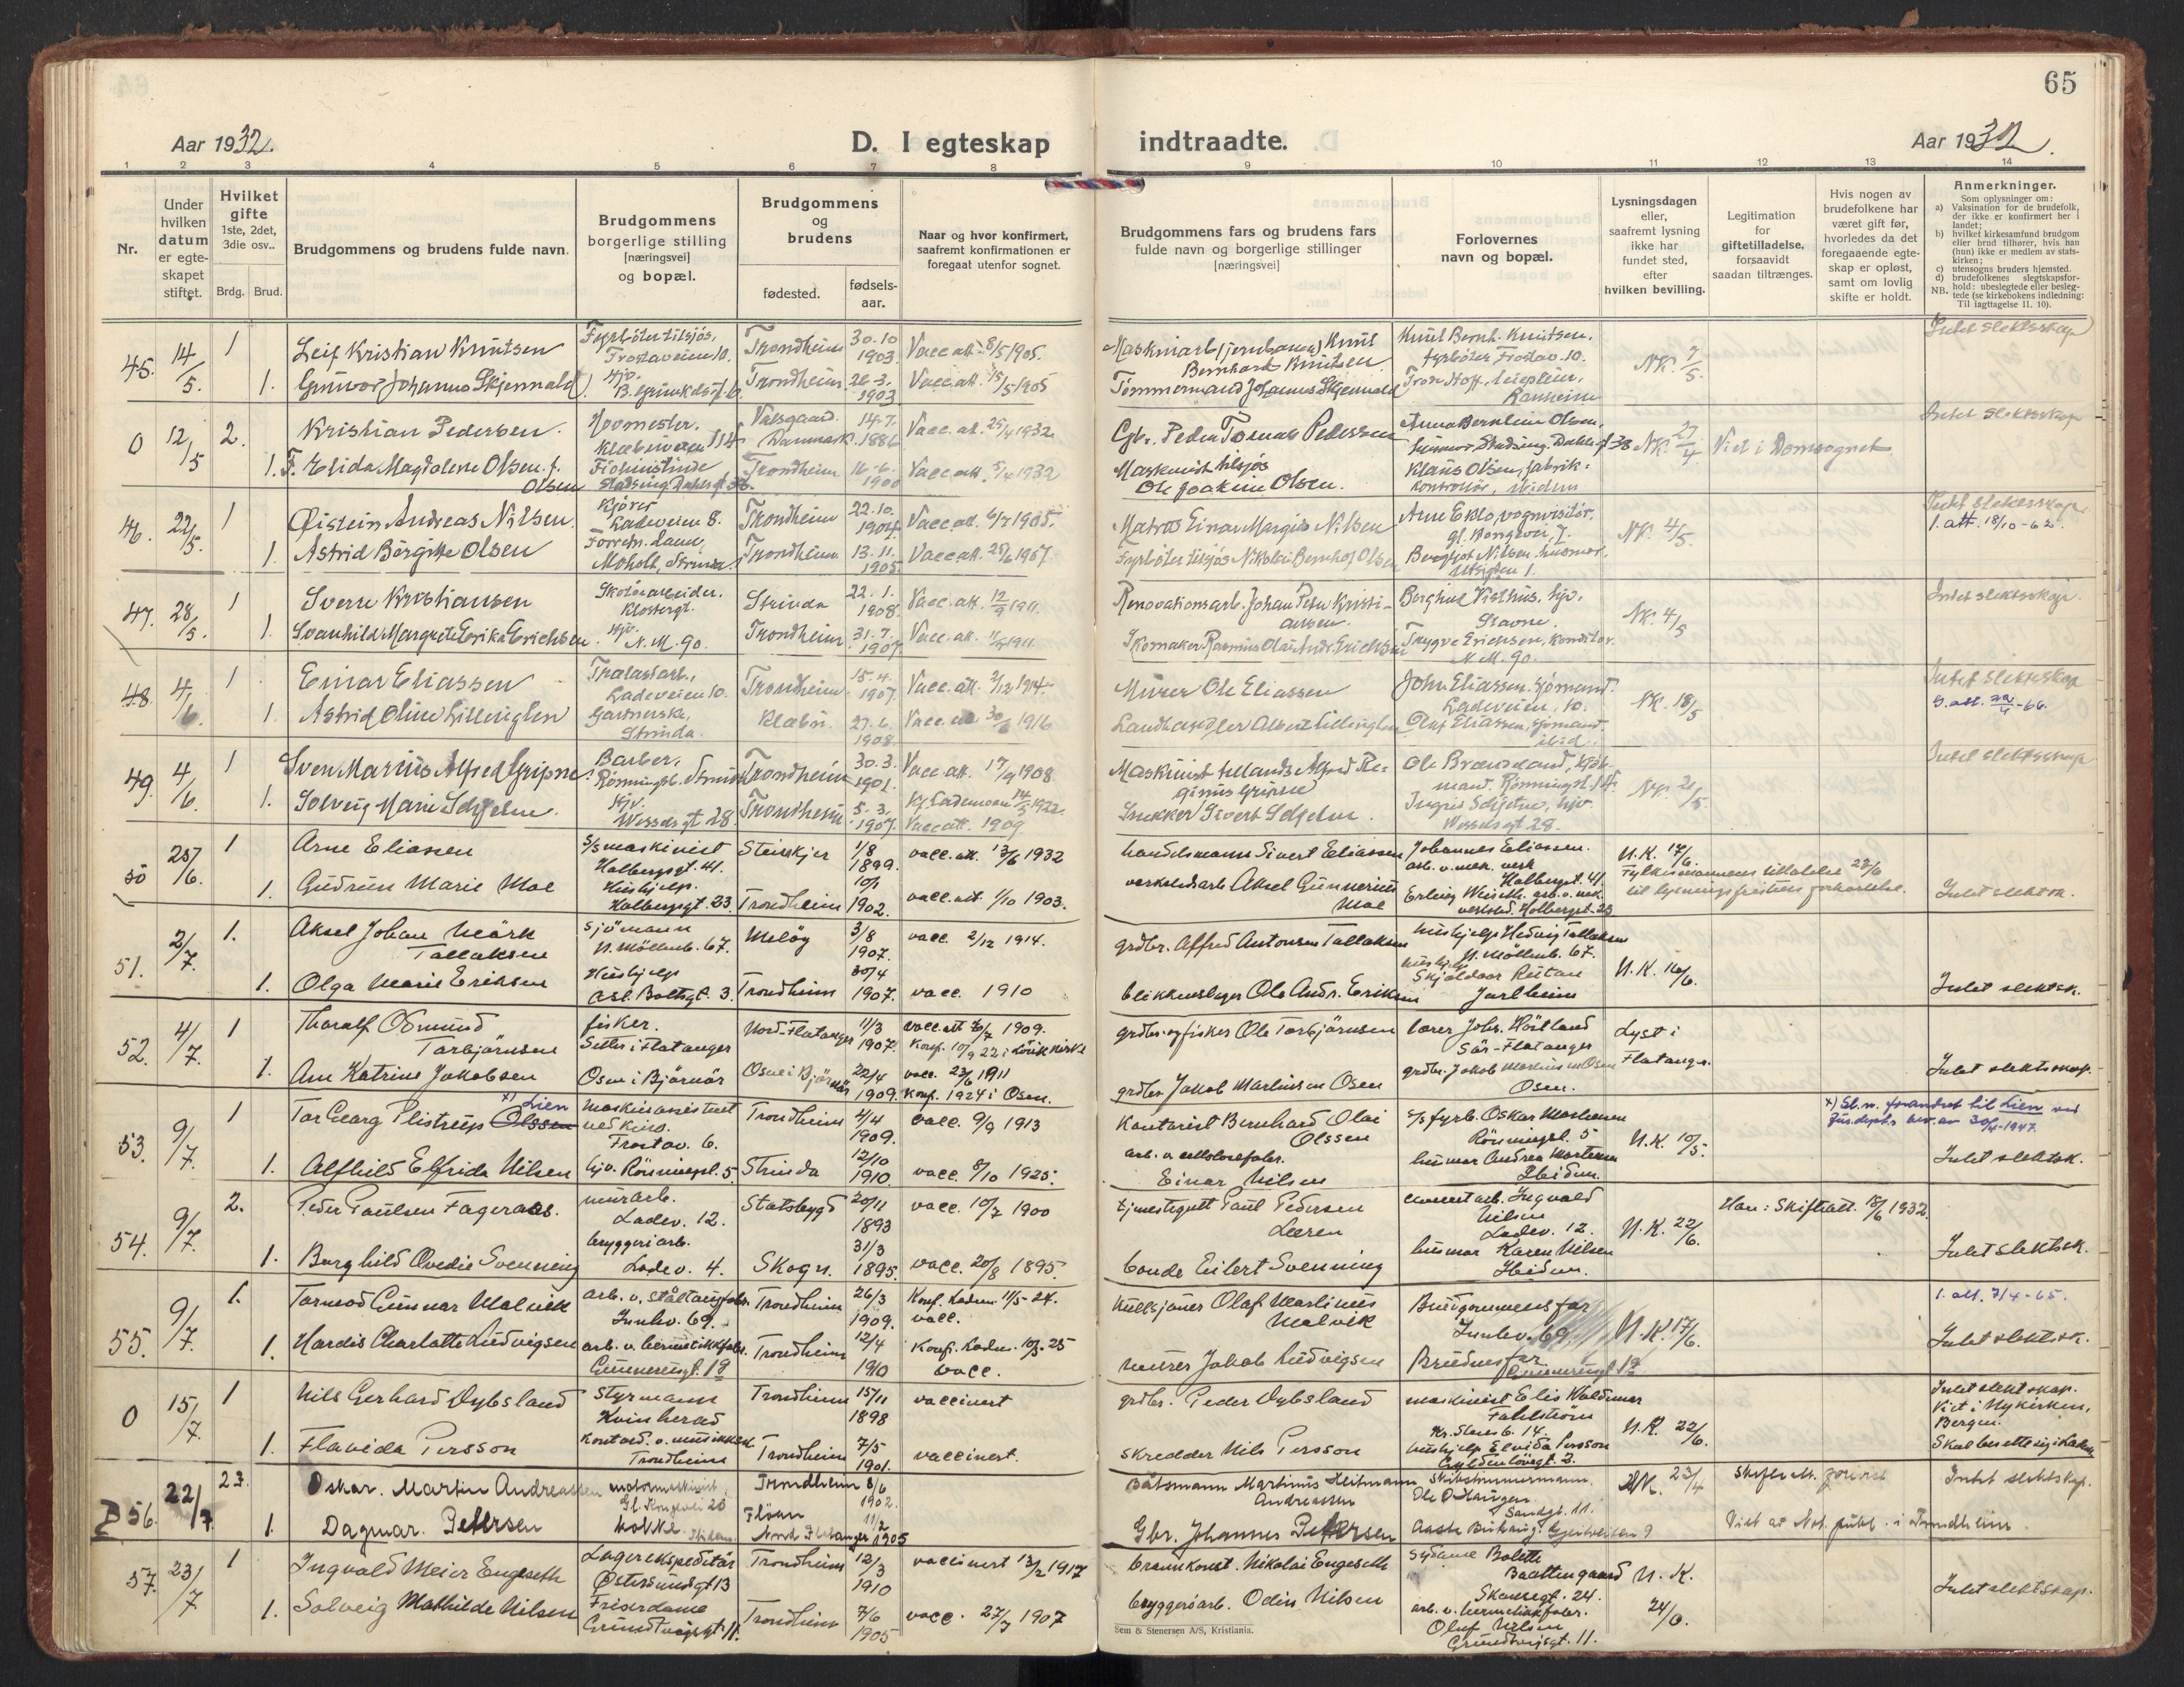 65
Aar 1932.
D. I egteskap
indtraadte.
Aar 1932.
1 2 3 4 5 6 7 8 9 10 11 12 13 14
Nr.
Under hvilken datum er egteskapet stiftet.
Hvilket gifte 1ste, 2det, 3die osv..
Brdg. Brud.
Brudgommens og brudens fulde navn.
Brudgommens borgerlige stilling [næringsvei] og bopæl.
Brudgommens og brudens
fødested.
fødselsaar.
Naar og hvor konfirmert, saafremt konfirmationen er foregaat utenfor sognet.
Brudgommens fars og brudens fars fulde navn og borgerlige stillinger [næringsvei]
Forlovernes navn og bopæl.
Lysningsdagen eller, saafremt lysning ikke har fundet sted, efter hvilken bevilling.
Legitimation for giftetilladelse, forsaavidt saadan tiltrænges.
Hvis nogen av brudefolkene har været gift før, hvorledes da det foregaaende egteskap er opløst, samt om lovlig skifte er holdt.
Anmerkninger.
Som oplysninger om:
a) Vaksination for de brudefolk, der ikke er konfirmert her i landet;
b) hvilket kirkesamfund brudgom eller brud tilhører, hvis han (hun) ikke er medlem av statskirken;
c) utensogns bruders hjemsted.
d) brudefolkenes slegtskapsforhold: ubeslegtede eller beslegtede (se kirkebokens indledning: Til Iagttagelse II, 10).
NB.
45. 14/5. 1 Leif Kristian Knutsen Fyrbøter tilsjøs, Frostaveien 10. Trondheim 30.10 1903 Vacc att. 8/5 1905. Maskinarb (jernbanen) Knut Bernhard Knutsen Knut Bernh. Knutsen, fyrbøter Frostav. 10. NK. 7/5. Intet slektsskap
1. Gunvor Johanne Skjermald Hjv. Trondheim 26.3. 1903 Vacc.att. 15/5 1905 Tømmermand Johannes Skjermald Ranheim
0 12/5 2. Kristian Pedersen Hovmester. Danmark 14.7. 1886 Vacc. att. 25/4 1932 Gbr. Peder Pedersen Anna Olsen, NK 27/4 Viet i Domsognet Intet slektsskap
1. F. Elida Magdalene Olsen f. Olsen Trondheim 16.6. 1900 Vacc att. 5/4 1932 Maskinist tilsjøs Ole Joakim Olsen. Klaus Olsen, fabrikkontrollør,
46. 22/5. 1 Øistein Andreas Nilsen Kjører Ladeveien 8. Trondheim 22.10. 1904 Vacc.att. 6/7 1905. Matros Einar Margido Nilsen Arne Eklo, vognvisitør. NK. 4/5. Intet slektsskap. 1. att. 18/10-62.
1. Astrid Børgitte Olsen Moholt, Strinda Trondheim 13.11. 1905. Vacc.att. 25/6 1907. Fyrbøter tilsjøs Nikolai Bernhof Olsen Bergljot Nilsen. husmor, Utsigten 1.
47. 28/5. 1 Sverre Kristiansen Skotøiarbeider. Klostergt. Strinda 22.1. 1908. Vacc. att. 12/9 1911. Renovationsarb. Johan Peter Kristiansen. Borghild hjv. Stavne. NK. 4/5 Intet slektsskap.
1. Svanhild Margrete Erika Erichsen Hjv. N.M. 90. Trondheim 31.7. 1907 Vacc. att. 1911. Skomaker Rasmus Olai Andr. Erichsen Trygve Erichsen, konditor. N.M. 90.
48. 4/6. 1 Einar Eliassen Trælastarb., Ladeveien 10. Trondheim 15.4. 1907. Vacc. att. 2/12 1914. Murer Ole Eliassen John Eliassen. Sjømand. Ladeveien, 10. NK. 18/5 Intet slektsskap
1. Astrid Oline Lillenglen Gartnerske, Strinda. Klæbu. 27.6. 1908. Vacc. att 1916 Landhandler Albert Lillenglen Olaf Eliassen, sjømand. ibid.
49. 4/6. 1 Sven Marius Alfred Gripne Barber, Rønningsb. Strinda Trondheim 30.3. 1901. Vacc att. 17/9 1908 Maskinist tillands Alfred Reginius Gripne Ole Brændand, kjøbmand. NK. 21/5. Intet slektsskap
1. Solveig Marie Selgelm Hjv. Wesselsgt 28. Trondheim 5.3. 1907. Kf. Lademoen 14/5 1922. Vacc att. 1909 Snekker Sivert Selgelm. Ingrid Selgelm, hjv. Wesselsgt 28.
50 25/6. 1 Arne Eliassen S/s maskinist Holbergsgt. 41. Steinkjer 1/8 1899. vacc. att. 13/6 1932 handelsmann Sivert Eliassen Johannes Eliassen. arb. v. mek. verk Holbergst. 41 N.K. 17/6. Fylkesmannens tillatelse 23/6 til lysningsfristens forkortelse.
1. Gudrun Marie Moe Hushjelp. Holbergsgt. 23. Trondheim 10/1 1902. vacc. att. 1/10 1903. verkstedarb Aksel Gunnerius Moe Erling arb. v. mek. verksted. Holbergst. 23 Intet slektsk.
51. 2/7. 1. Aksel Johan Mørk Tallaksen Sjømann N. Møllenb. 67. Meløy 3/8 1907. vacc. 2/12 1914. grdbr. Alffred Antonsen Tallaksen hushjelp Hedvig Tallaksen N. Møllenb. 67.
1. Olga Marie Eriksen Hushjelp Asl. Boltsgt. 3. Trondheim 30/4 1907. vacc. 1910 blikkenslager Ole Andr. Eriksen hushjelp Skjoldvor Reitan Jarlheim N.K. 16/6. Intet slektsk.
52. 4/7. 1 Tharalf Osmund Torbjørnsen fisker. Setter i Flatanger Nord-Flatanger 11/3 1907. vacc.att 20/7 1909. konf. 10/9 22 i Løvik kirke grdbr. og fisker Ole Torbjørnsen lærer Johs. Hørtland Sør-Flatanger Lyst i Flatanger.
1. Ane Katrine Jakobsen Osen i Bjørnør Osen i Bjørnør 22/4 1909. vacc. 23/6 1911 konf. 1924 i Osen. grdbr. Jakob Martinsen Osen grdbr. Jakob Martinsen Osen Osen. Intet slektsskap.
53. 9/7. 1 Tor Georg Plistrup Olssen x) Lien maskinassistent ved kino. Frostav. 6. Trondheim 4/4 1909. vacc. 9/9 1913 Kontorist Bernhard Olai Olssen s/s fyrb. Oskar Mortensen Rønningsl. 5 N.K. 10/5. x) Sl.n. forandret til Lien ved Jus.dept.s bev. av 30/4-1947.
1. Alfhild Elfrida Nilsen hjv. Rønningsl. 5 Strinda 12/10 1910. vacc. 8/10 1925. arb. v cellulosefabr. Einar Nilsen husmor Andrea Mortensen Ibidem. Intet slektsk.
54. 9/7. 2. Peder Paulsen Fageraas. murarb. Ladev. 12. Statsbygd 20/11 1893 vacc. 10/7 1900 tjenestegutt Paul Pedersen Leeren cementarb. Ingvald Nilsen Ladev. 12. N.K. 22/6. Han: Skifteatt. 18/6 1932.
1. Borghild Ovedie Svenning bryggeriarb. Ladev. 4. Skogn. 31/3 1895. vacc. 20/8 1895. bonde Eilert Svenning husmor Karen Nilsen Ibidem. Intet slektsk.
55. 9/7. 1. Tormod Gunnar Malvik arb. v. ståltaugfabr. Innhv. 69. Trondheim 26/3 1909. Konf. Ladem 11/5-24. vacc. kullsjauer Olaf Martinus Malvik Brudgommens far Innhv. 69 N.K. 17/6. 1. att. 7/4-65.
1. Hardis Charlotte Ludvigsen arb. v. hermetikkfabr. Gunnerusgt. 19 Trondheim 12/4 1910 Konf. Ladm. 10/5-25 vacc. murer Jakob Ludvigsen Brudens far Gunnerusgt 19 Intet slektsk.
0 15/7. 1 Nils Gerhard Dybsland Styrmann Kvinherad Trondheim 15/11 1898 vaccinert grdbr. Peder Dybsland maskinist Elis Valdemar Fahlstrøm N.K. 22/6. Intet slektskap. Viet i Nykirken, Bergen.
1. Flavida Persson Trondheim Trondheim 7/5 1901. vaccinert. skredder Nils Persson hushjelp Elvida Persson Gyldenløvesgt. 2.
56. 22/7 2. Oskar. Martin Andreassen motormaskinist, Gl. Kongevei 20 Trondheim 8/6 1902. Båtsmann Martinus Heitmann Andreassen Skibstømmermann. Ole O Haugen Sandgt. 11. NK. 23/4 Intet slektskap.
1. Dagmar. Petersen kokke. Ibidem. Fløan Nord Flatanger 11/2 1905 Gbr. Johannes Petersen Viet av Not. publ. i Trondheim
57. 23/7 1 Ingvald Meier Engeseth Lagerekspeditør Østersundsgt 13 Trondheim 12/3 1910 vaccinert 13/2 1917 brannkonst. Nikolai Engeseth Sydame Bolette N.K. 24/6.
1. Solveig Mathilde Nilsen Friserdame Grundtvigsgt. 11. Trondheim 7/6 1905 vacc. 27/7 1907 bryggeriarb. Odin Nilsen arb. v. hermetikkfabr. Oluf Nilsen Grundtvigsgt. 11. Intet slektskap.
Sem & Stenersen A/S, Kristiania.